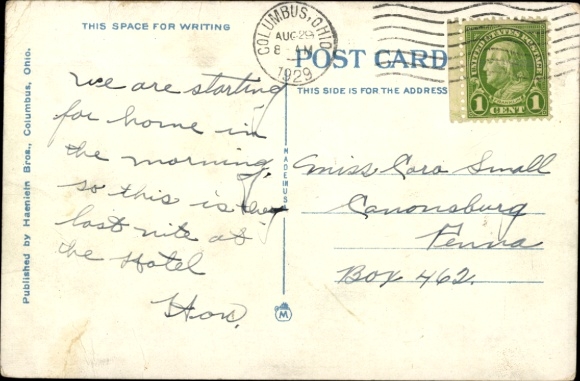 THIS SPACE FOR WRITING
COLUMBUS, OHIO
AUG 29
8 - AM
1929
UNITED STATES POSTAGE
FRANKLIN
1 CENT 1
POST CARD
THIS SIDE IS FOR THE ADDRESS
We are starting
for home in
the morning,
so this is
last nite at
the Hotel
Published by Haenlein Bros., Columbus, Ohio.
MADE IN USA
Miss Cora Small
Canonsburg
Penna
Box 462.
M